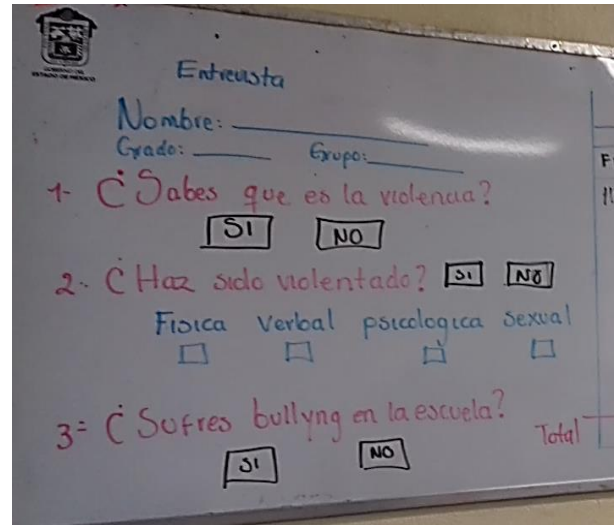 GOBIERNO DEL
ESTADO DE MÉXICO
Entrevista
Nombre:
Grado: Grupo:
1- ¿Sabes que es la violencia?
SI NO
2- ¿Haz sido violentado? SI NO
Fisica Verbal psicologica sexual
3= ¿Sufres bullyng en la escuela?
SI NO
Total
F